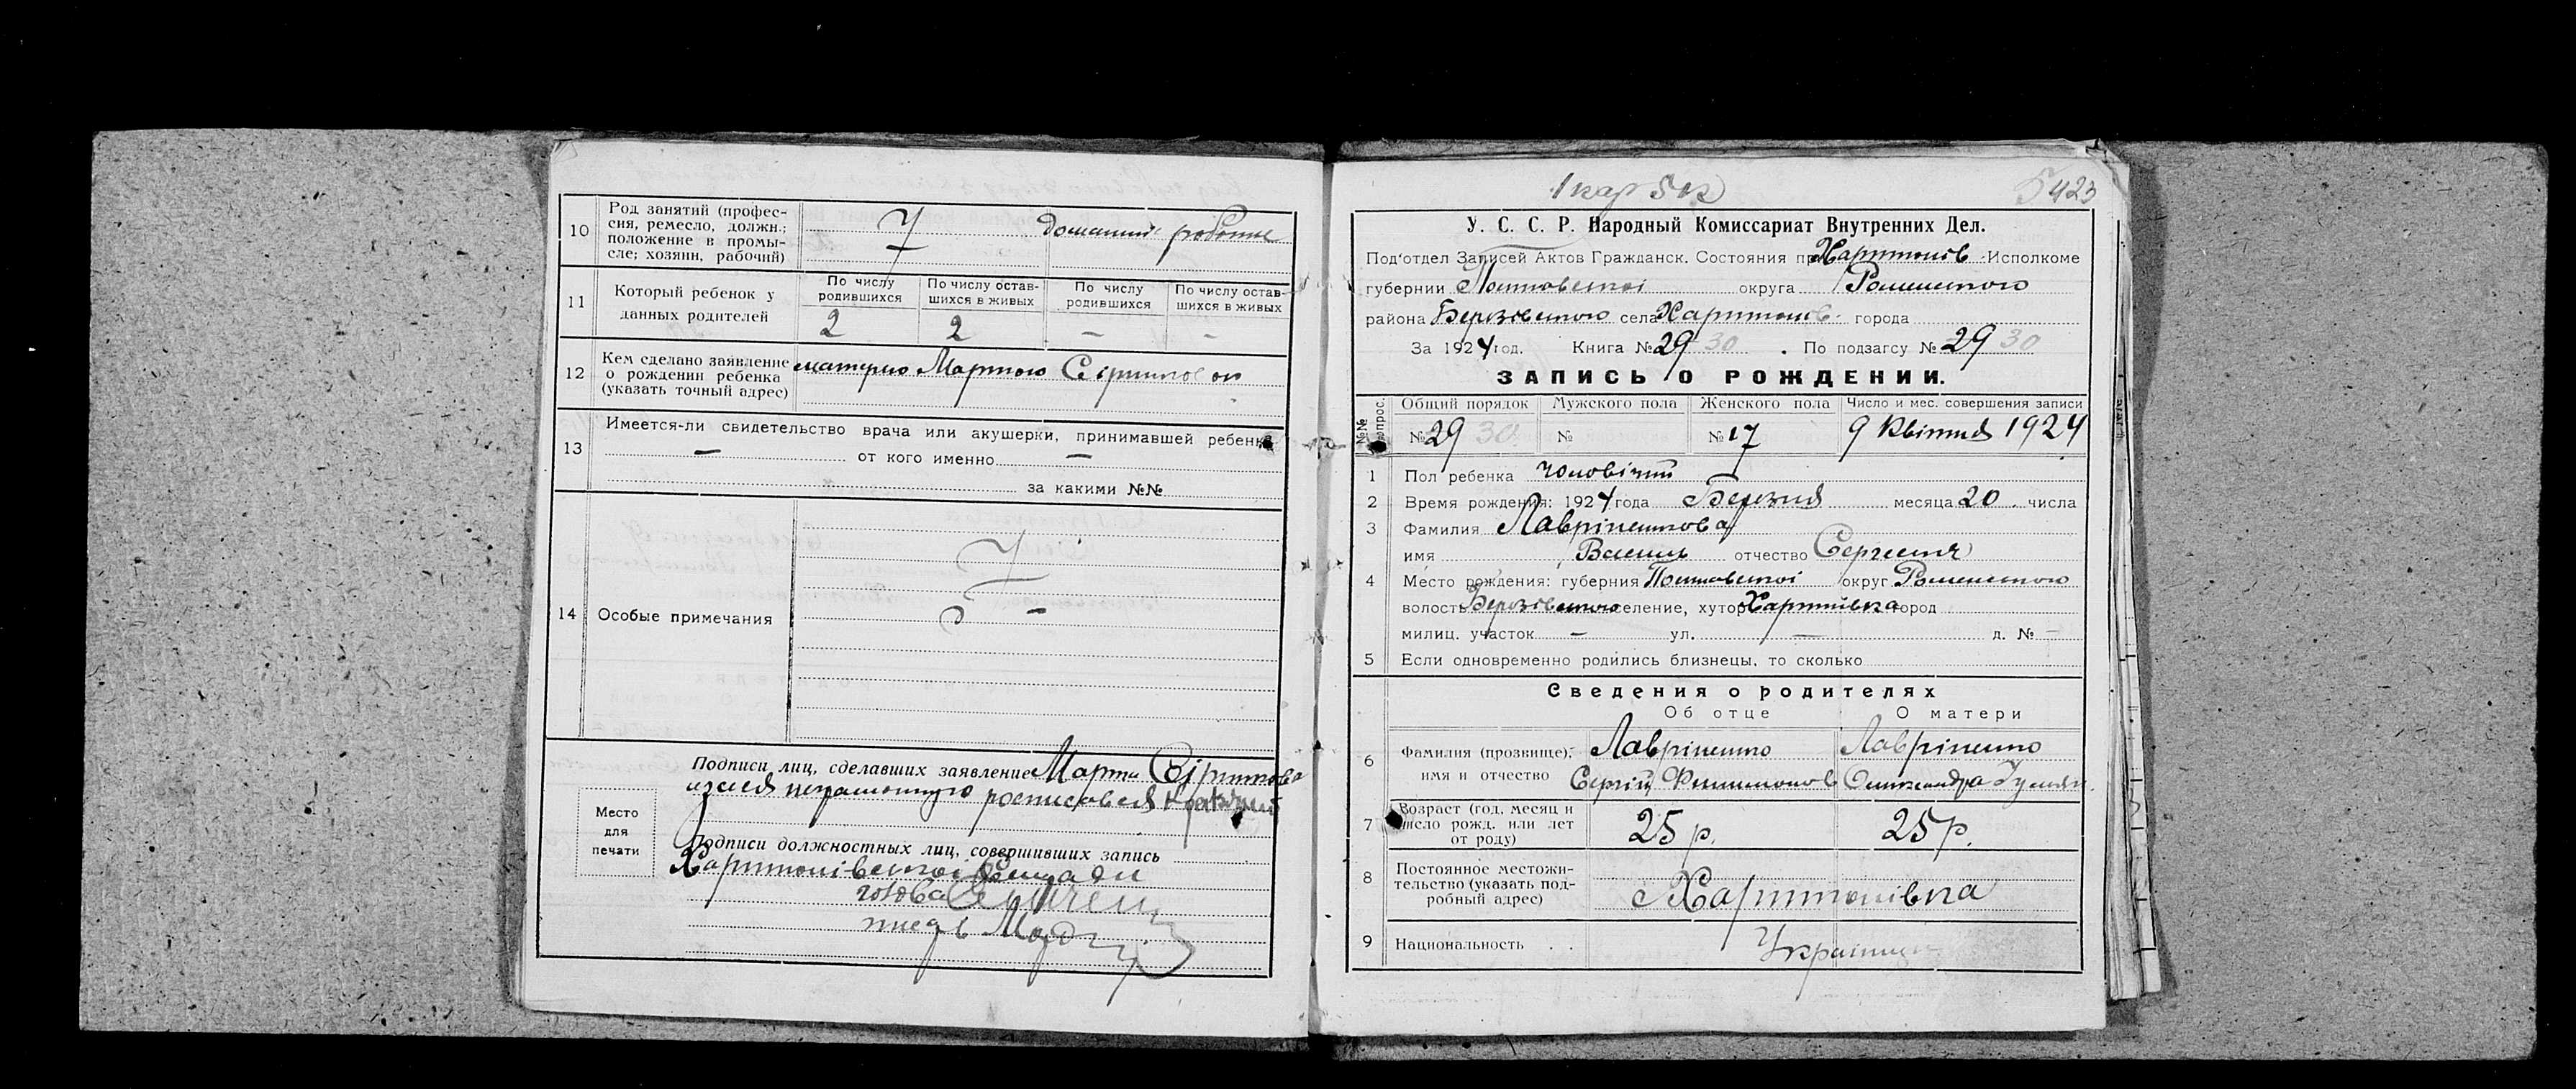 10
Род занятий (профес-
сия, ремесло, должн.;
положение в промы-
сле; хозяин, рабочий)
домашні роботи
11
Который ребенок у
данных родителей
По числу родившихся
По числу остав-шихся в живых
По числу родившихся
По числу остав-шихся в живых
2 2 - -
12
Кем сделано заявление
о рождении ребенка
(указать точный адрес)
матерью Мартою
13
Имеется-ли свидетельство врача или акушерки, принимавшей ребенка
— от кого именно —
за какими №№
14 Особые примечания
Подписи лиц, сделавших заявление Марта
неграмотную росписався
Место
для
печати
Подписи должностных лиц, совершивших запись
Харитонівської
голова
5423
У. С. С. Р. Народный Комиссариат Внутренних Дел.
Под'отдел Записей Актов Гражданск. Состояния при Харитонів. Исполкоме
губернии Полтавської округа Роменського
района Березівського села Харитонів. города
За 1924 год. Книга № 29 30 . По подзагсу № 29 30
ЗАПИСЬ О РОЖДЕНИИ.
№№ вопрос.
Общий порядок Мужского пола Женского пола Число и мес. совершения записи
№ 29 30 № № 17 9 Квітня 1924
1 Пол ребенка чоловічий
2 Время рождения: 1924 года Березня месяца 20 числа
3 Фамилия Лавріненкова
имя Василь отчество
4 Место рождения: губерния Полтавської округ Роменського
волость Березівського селение, хутор Харитонівка город
милиц. участок — ул. — д. № —
5 Если одновременно родились близнецы, то сколько
Сведения о родителях
Об отце О матери
6
Фамилия (прозвище), Лавріненко Лавріненко
имя и отчество Сергій Филимонов Олександра
7
Возраст (год, месяц и
число рожд. или лет
от роду)
25 р. 25 р.
8
Постоянное местожи-
тельство (указать под-
робный адрес)
Харитонівка
9 Национальность . . Українці